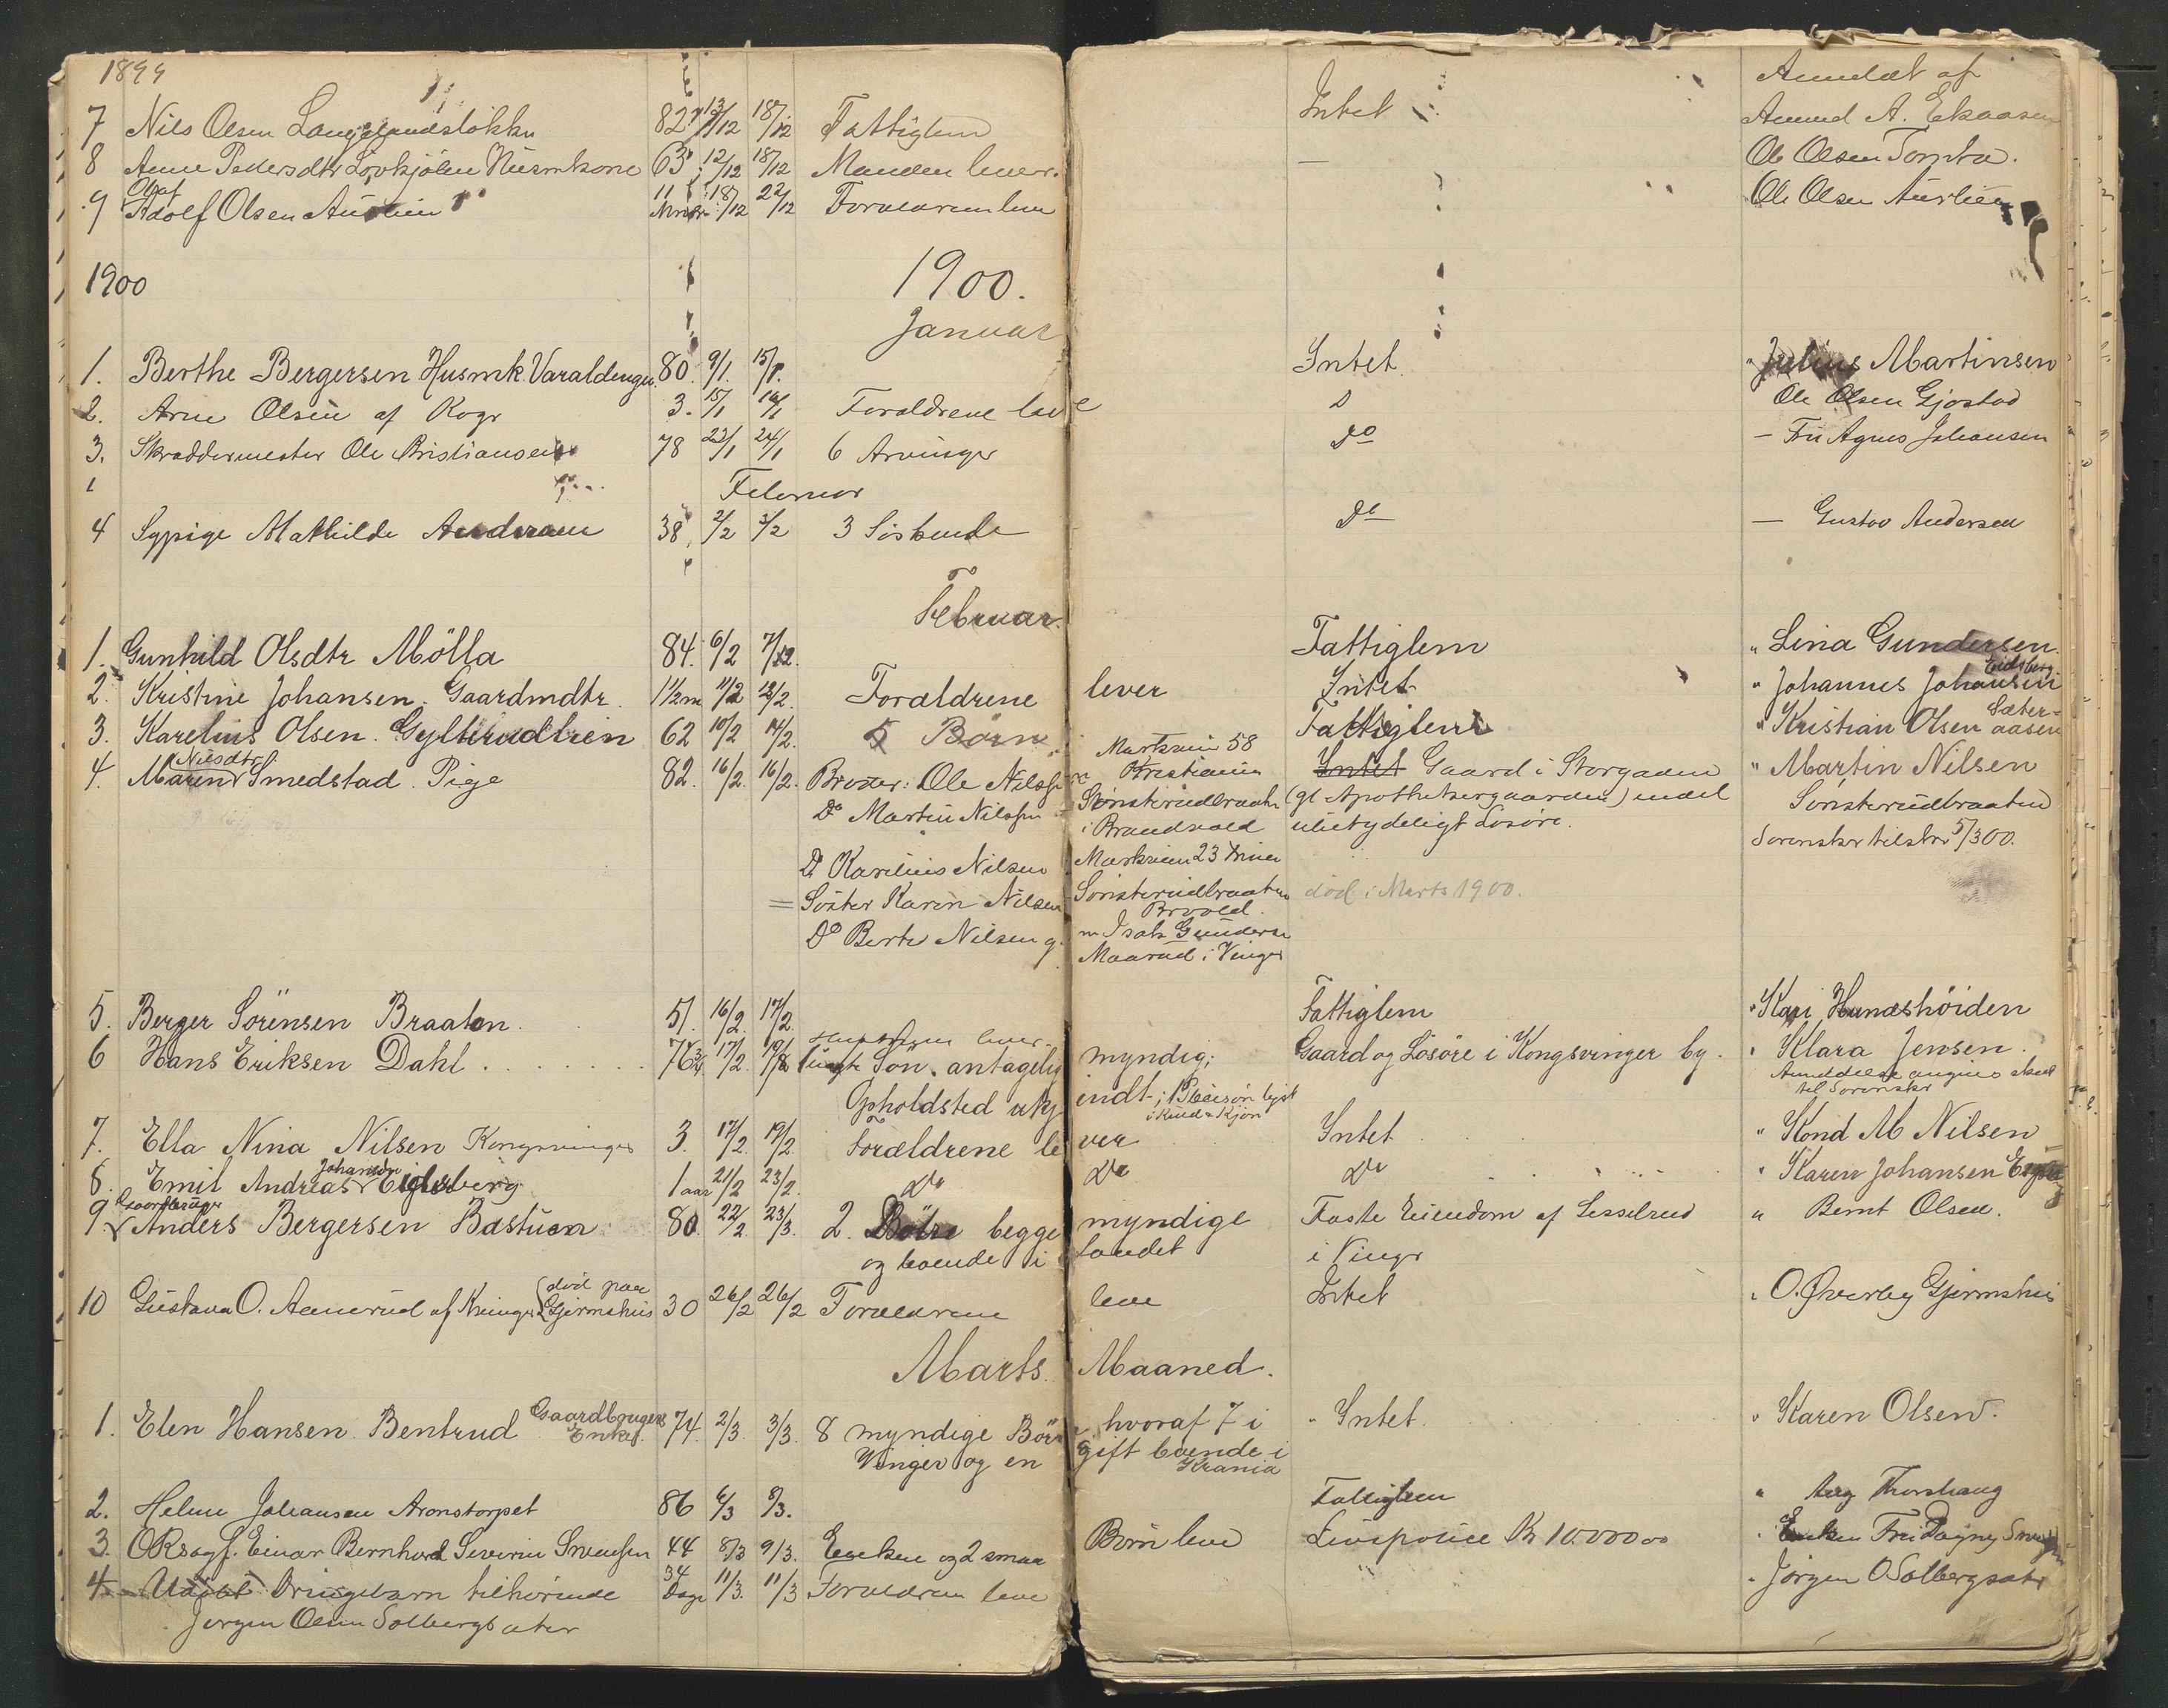 1899
Anmeldt af
7 Nils Olsen Langelandsløkka 82 13/12 18/12 Fattiglem Intet Amund A. Ekaasen
8 Anne Pedersdtr Lövhjölen Husmkone 63 12/12 18/12 Manden lever. — Ole Olsen Tomta.
Olaf
9 Adolf Olsen Austlien 11 Mndr 18/12 22/12 Forældrene leve Ole Olsen Austlien
1900 1900.
Januar
1. Berthe Bergersen Husmk. Varaldengen 80. 9/1. 15/1. Intet " Julius Martinsen
2. Arne Olsen af Rogr 3. 15/1 16/1 Forældrene leve D Ole Olsen Gjøstad
3. Skræddermester Ole Kristiansen 78 22/1 24/1 6 Arvinger Do — Fru Agnes Johansen
Februar
4 Sypige Mathilde Andersen 38 2/2 3/2 3 Söskende Do — Gustav Andersen
Februar.
1. Gunhild Olsdtr Mölla 84. 6/2 7/2. Fattiglem " Lina Gundersen.
Eidsberg
2. Kristine Johansen. Gaardmdtr. 1 1/2 m 11/2 12/2. Forældrene lever Intet " Johannes Johansen
Sæter-
3. Karelius Olsen. Gylterudtrien 62 10/2 14/2. 5 Børn Fattiglem " Kristian Olsen aasen
Nilsdtr
4. Maren Smedstad. Pige 82. 16/2. 16/2. Broder: Ole Nilssen Markveien 58 Kristiania Intet Gaard i Storgaden " Martin Nilsen
Do Martin Nilssen Sönsterudbraaten i Brandvold (gl Apothekergaarden) endel ubetydeligt Løsöre. Sönsterudbraaten
Sorenskr tilskr 5/3 00.
Do Karelius Nilsen Markveien 23
= Söster Karen Nilsen Sönsterudbraaten Brvold. død i Marts 1900.
Do Berte Nilsen g. m Isak Gundersen
Maarud i Vinger
5. Berger Sörensen Braaten. 51. 16/2. 17/2. Fattiglem " Kari Hundshöiden
6 Hans Eriksen Dahl 76 3/4. 17/2. 19/2 Sön. antagelig myndig; Gaard og Lösöre i Kongsvinger by. " Klara Jensen.
Opholdsted ukjendt til Sorenskr
7. Ella Nina Nilsen Kongsvinger 3. 17/2. 19/2. Forældrene lever Intet " Kond M Nilsen
Johansen
8. Emil Andreas Eidsberg 1 aar 21/2 23/2. Do Do Do " Karen Johansen
Gaardbruger
9. Anders Bergersen Bastuen 80. 22/2. 23/3. 2. Døtre begge myndige Faste Eiendom af Lisselrud " Bernt Olsen.
og boende i Landet i Vinger
død paa
10 Gustava O. Aamerud af Kvinger Gjermshus 30 26/2 26/2 Forældrene leve Intet " O. Øverby Gjermshus
Marts. Maaned.
1. Elen Hansen. Bentrud Gaardbrugers Enke. 74. 2/3. 3/3. 8 myndige Börn, hvoraf 7 i " Intet. " Karen Olsen.
Vinger og en gift boende i
Krania
2. Helene Johansen Aronstorpet 86 6/3 8/3. Fattiglem " Aug Thorshaug
3. ORsagf. Einar Bernhard Severin Svensen 44 8/3 9/3. Enken og 2 smaa Børn leve Livspolice Kr 10.000 00 " Enken Fru Dagny
4 Udöbt Drengebarn tilhørende 34 Dage 11/3. 11/3 Forældrene leve " " Jörgen O Solbergsæter
Jørgen Olsen Solbergsæter